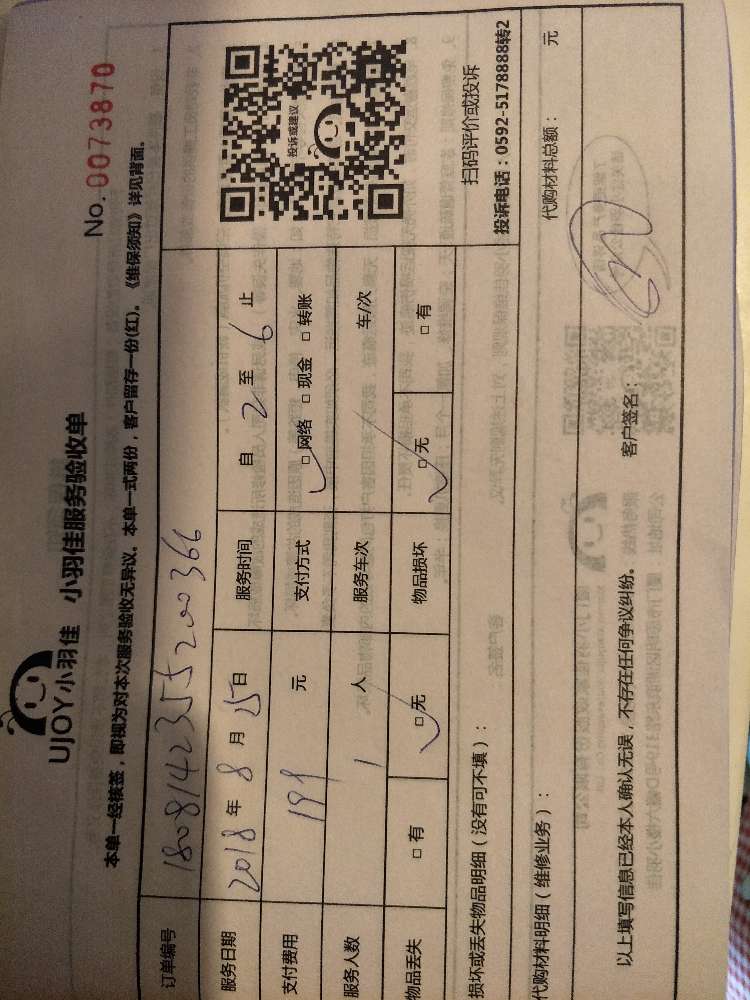 No. 0073870
UJOY小羽佳 小羽佳服务验收单
本单一经核签，即视为对本次服务验收无异议。本单一式两份，客户留存一份(红)。《维保须知》详见背面。
订单编号 1808142355200366
服务日期 2018 年 8 月 25 日 服务时间 自 2 至 6 止
支付费用 199 元 支付方式 □ 网络 □ 现金 □ 转账
服务人数 1 人 服务车次 车/次
物品丢失 □ 有 □ 无 物品损坏 □ 无 □ 有
投诉或建议
扫码评价或投诉
投诉电话：0592-5178888转2
损坏或丢失物品明细（没有可不填）：
代购材料明细（维修业务）： 代购材料总额： 元
以上填写信息已经本人确认无误，不存在任何争议纠纷。 客户签名：